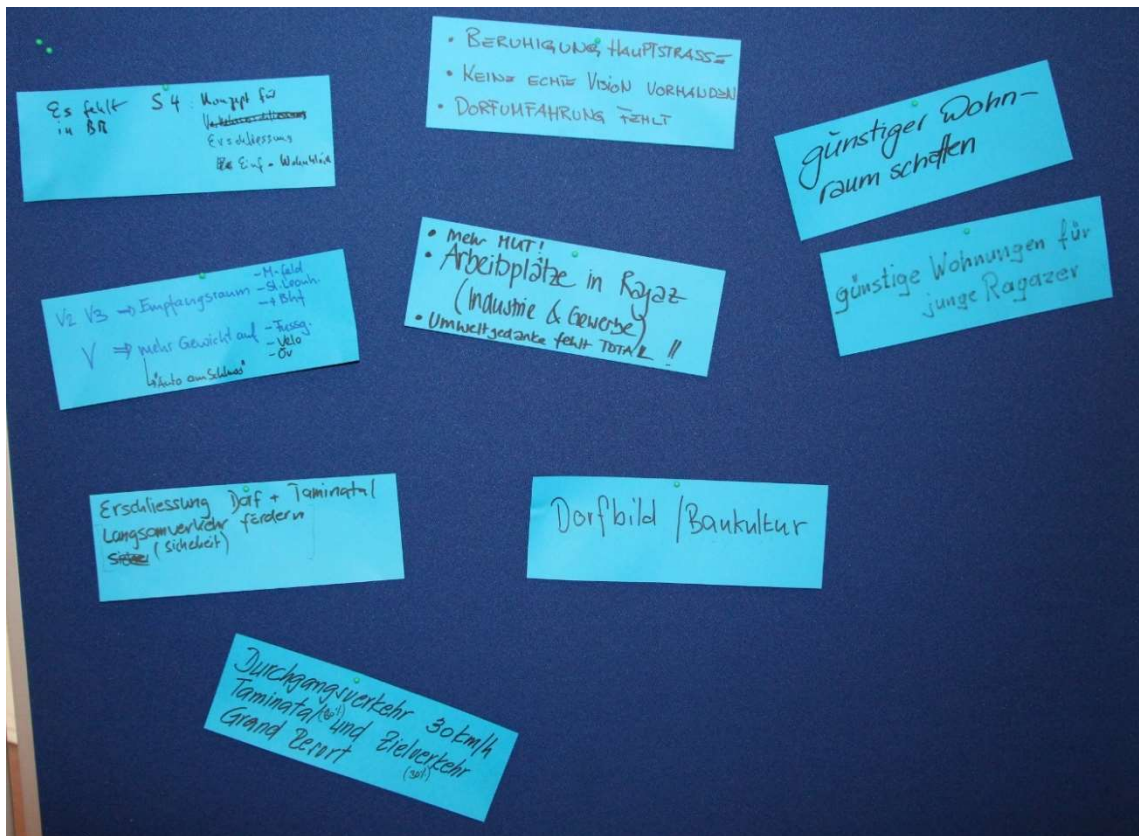 Es fehlt S4: Konzept für
in BR
Erschliessung
Einf - Wohnblöcke
• BERUHIGUNG HAUPTSTRASSE
• KEINE ECHTE VISION VORHANDEN
• DORFUMFAHRUNG FEHLT
günstiger Wohn-
raum schaffen
günstige Wohnungen für
junge Ragazer
V2 V3 ⇒ Empfangsraum - M. feld
- St. Leonh.
→ Bhf
V ⇒ mehr Gewicht auf - Fussg.
- Velo
- ÖV
↳ "Auto am Schluss"
• Mehr MUT!
• Arbeitsplätze in Ragaz
(Industrie & Gewerbe)
• Umweltgedanke fehlt TOTAL !!
Erschliessung Dorf + Taminatal
Langsamverkehr fördern
(Sicheheit)
Dorfbild / Baukultur
Durchgangsverkehr 30km/h
Taminatal und Zielverkehr
Grand Resort